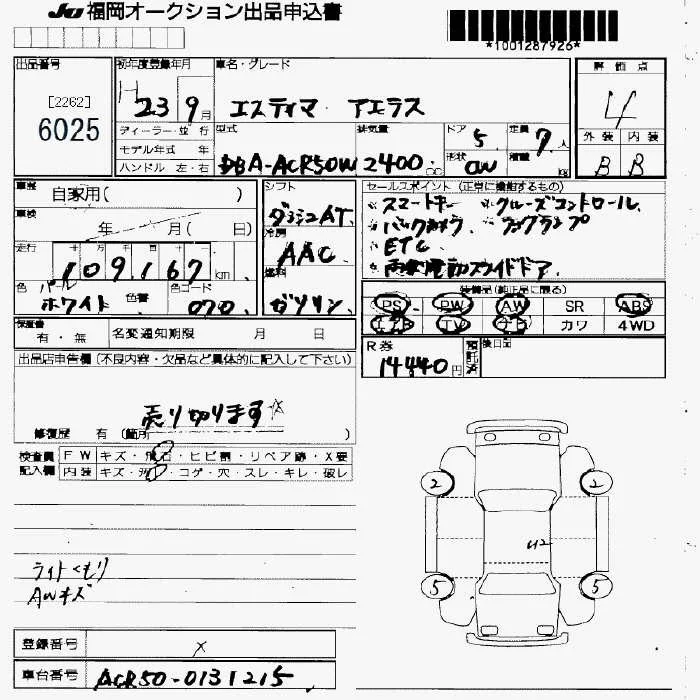 JU 福岡オークション出品申込書
*1001287926*
出品番号
[2262]
6025
初年度登録年月
H 23 9月
車名・グレード
エスティマ アエラス
評価点
4
外装 内装
B B
ディーラー・並行
モデル年式 年
ハンドル 左・右
型式
DBA-ACR50W
排気量
2400 cc
ドア
5
形状
OW
定員
7人
積量
kg
車歴
自家用( )
車検
年 月( 日)
走行
109,167 km
色 パール
ホワイト
色替
色コード
070
シフト
ダッシュAT
冷房
AAC
燃料
ガソリン
セールスポイント (正常に機能するもの)
スマートキー クルーズコントロール
バックカメラ フォグランプ
ETC
両側電動スライドドア
装備品(純正品に限る)
PS PW AW SR ABS
エアB TV ナビ カワ 4WD
保証書
有・無
名変通知期限 月 日
R券
14440円
預託済
後日品
出品店申告欄(不良内容・欠品など具体的に記入して下さい)
売り切ります☆
修復歴 有 (箇所 )
検査員記入欄
FW キズ・飛石・ヒビ割・リペア跡・X要
内装 キズ・汚・コゲ・穴・スレ・キレ・破レ
2 2
U2
5 5
ライトくもり
AWキズ
登録番号 x
車台番号 ACR50-0131215